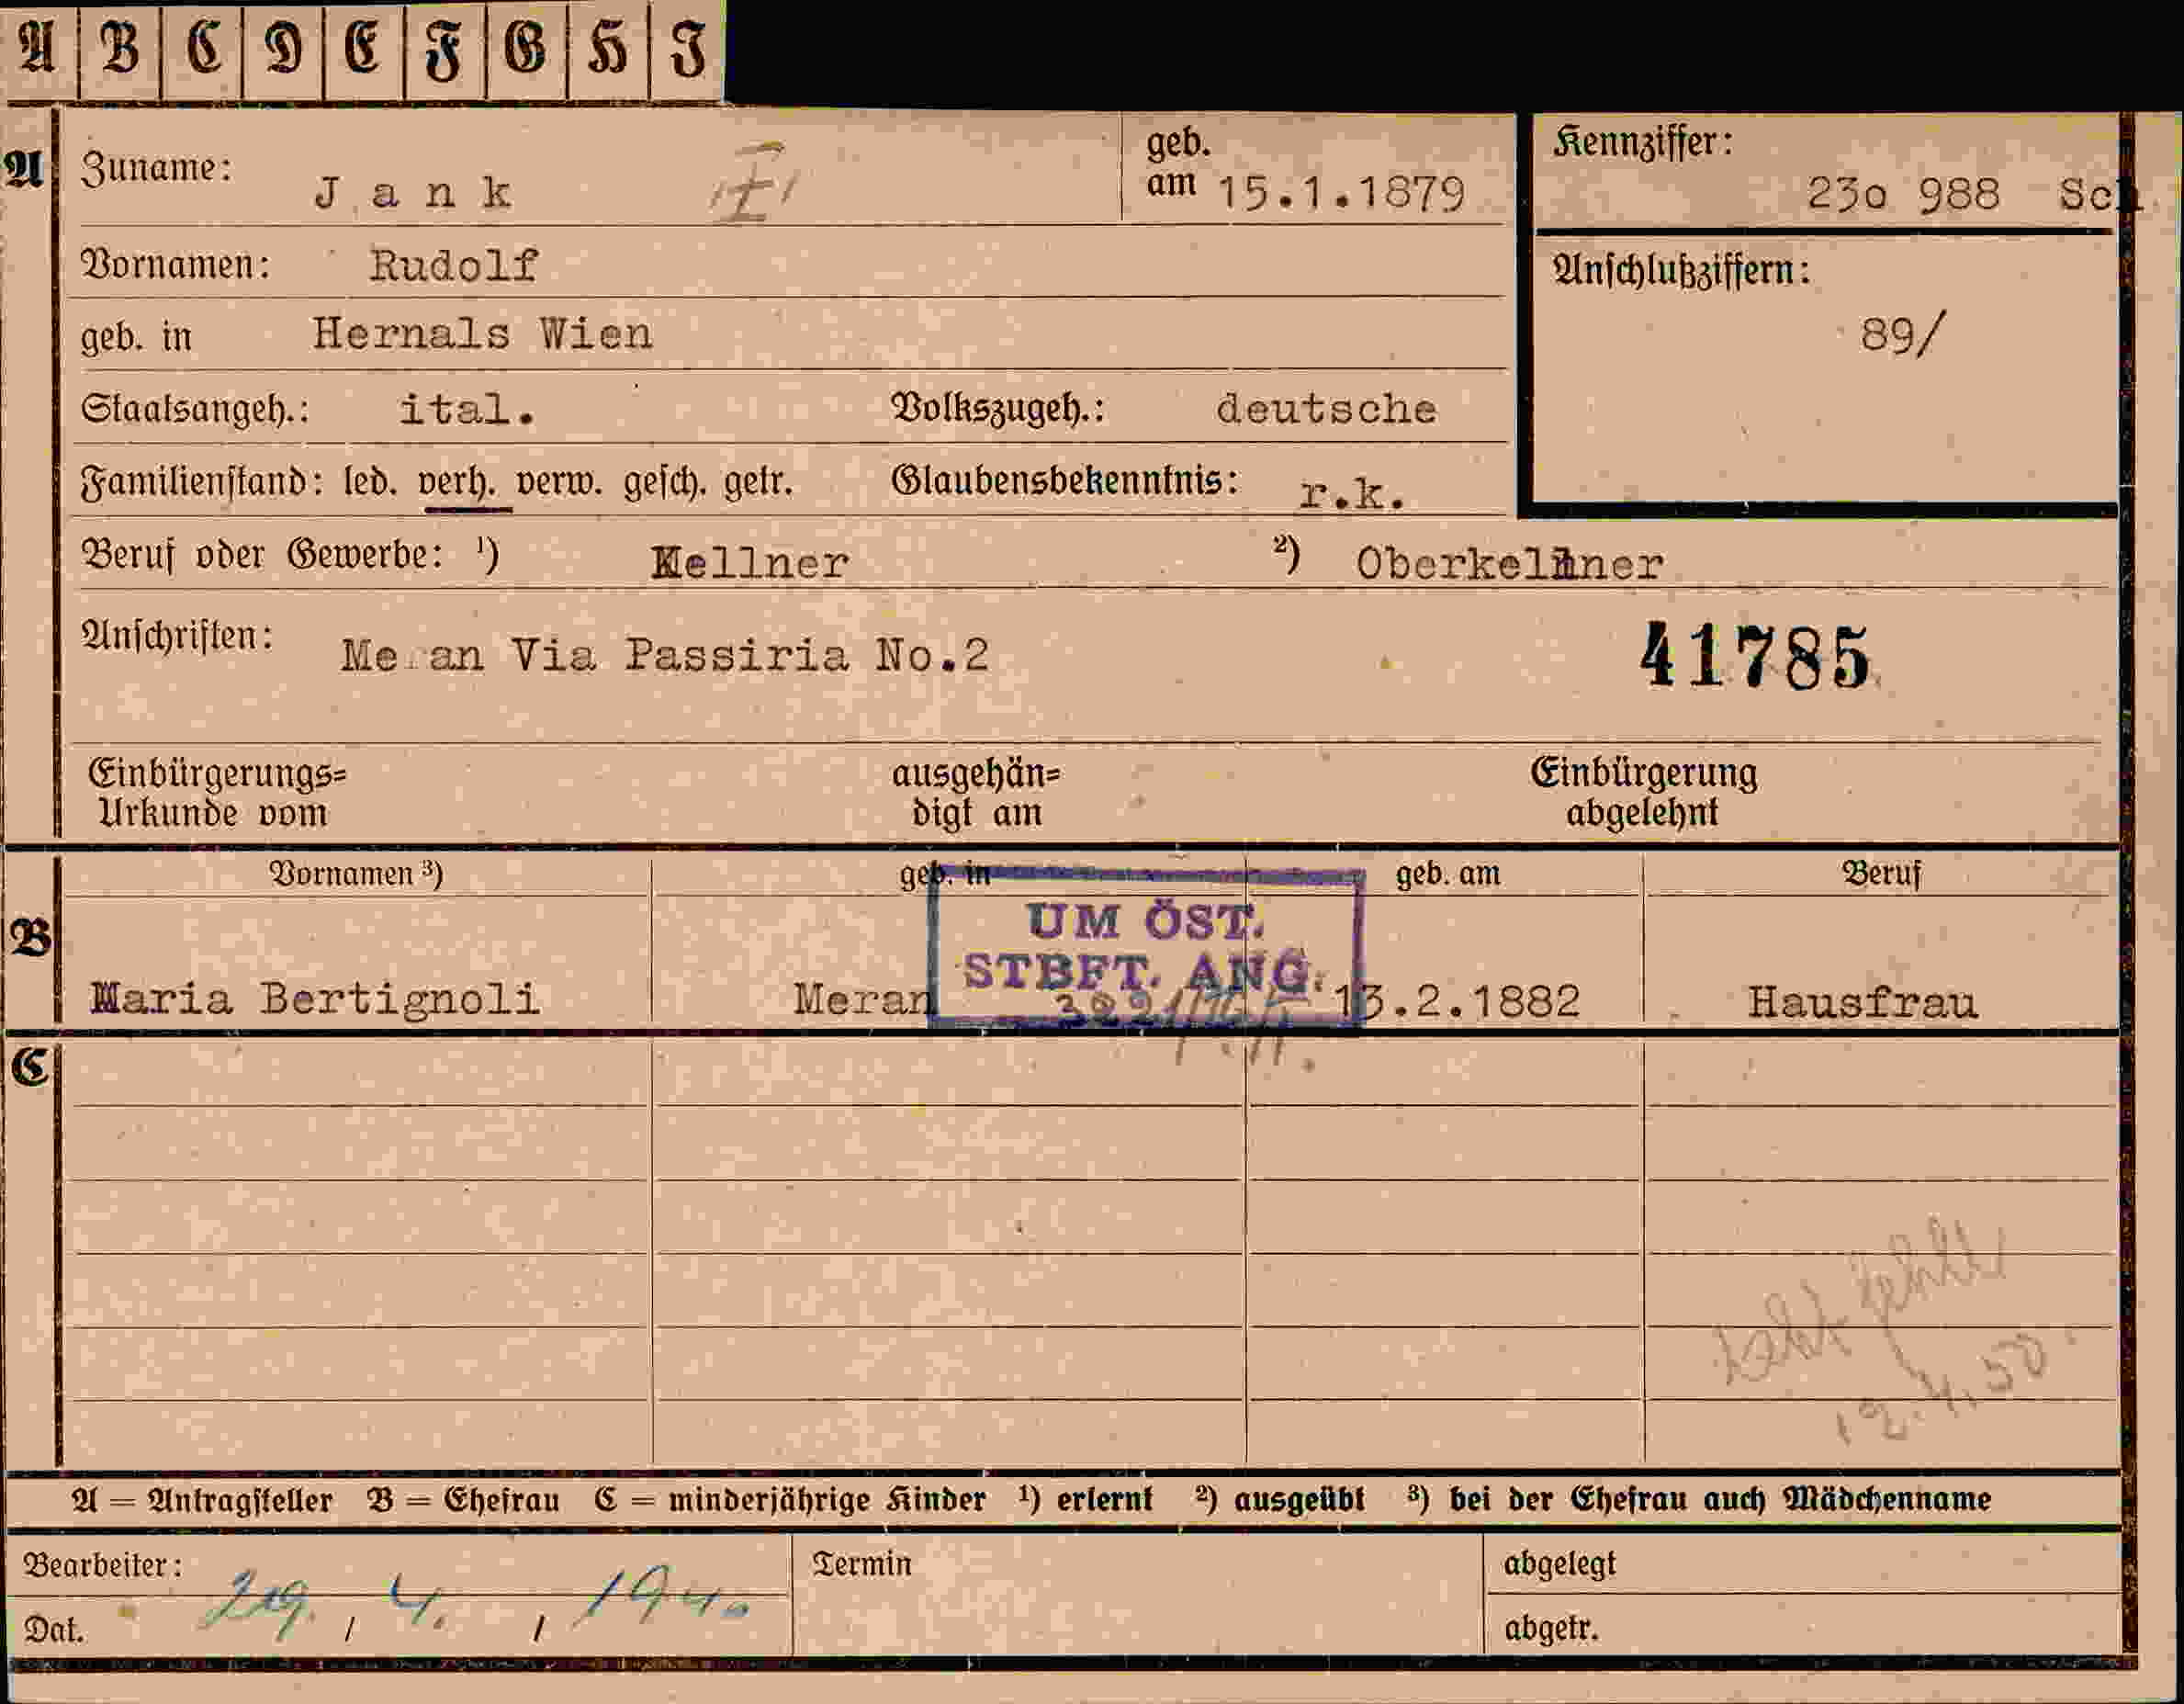 A B C D E F G H I
A Zuname: Jank geb. am 15.1.1879
Kennziffer: 23o 988 Sch
Vornamen: Rudolf
Anschlußziffern: 89/
geb. in Hernals Wien
Staatsangeh.: ital. Volkszugeh.: deutsche
Familienstand: led. verh. verw. gesch. getr. Glaubensbekenntnis: r.k.
Beruf oder Gewerbe: ¹) Kellner ²) Oberkellner
Anschriften: Meran Via Passiria No.2
41785
Einbürgerungs= Urkunde vom
ausgehän= digt am
Einbürgerung abgelehnt
Vornamen ³) geb. in geb. am Beruf
UM ÖST.
STBFT. ANG.
B Maria Bertignoli Meran 13.2.1882 Hausfrau
C
A = Antragsteller B = Ehefrau C = minderjährige Kinder ¹) erlernt ²) ausgeübt ³) bei der Ehefrau auch Mädchenname
Bearbeiter: Termin abgelegt
Dat. 29. / 4. / 1940 abgetr.